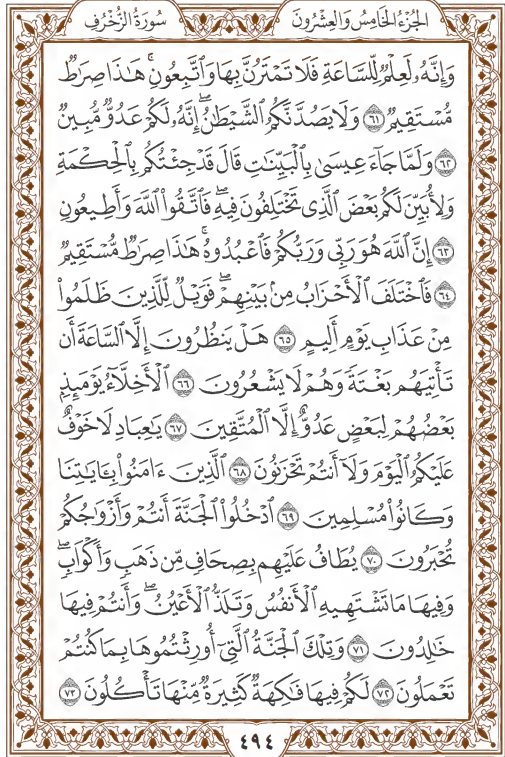 الجُزْءُ الخَامِسُ وَالعِشْرُونَ سُورَةُ الزُّخْرُفِ
وَإِنَّهُۥ لَعِلْمٌ لِّلسَّاعَةِ فَلَا تَمْتَرُنَّ بِهَا وَٱتَّبِعُونِۚ هَٰذَا صِرَٰطٌ
مُّسْتَقِيمٌ ٦١ وَلَا يَصُدَّنَّكُمُ ٱلشَّيْطَٰنُۖ إِنَّهُۥ لَكُمْ عَدُوٌّ مُّبِينٌ
٦٢ وَلَمَّا جَآءَ عِيسَىٰ بِٱلْبَيِّنَٰتِ قَالَ قَدْ جِئْتُكُم بِٱلْحِكْمَةِ
وَلِأُبَيِّنَ لَكُم بَعْضَ ٱلَّذِى تَخْتَلِفُونَ فِيهِۖ فَٱتَّقُوا۟ ٱللَّهَ وَأَطِيعُونِ
٦٣ إِنَّ ٱللَّهَ هُوَ رَبِّى وَرَبُّكُمْ فَٱعْبُدُوهُۚ هَٰذَا صِرَٰطٌ مُّسْتَقِيمٌ
٦٤ فَٱخْتَلَفَ ٱلْأَحْزَابُ مِنۢ بَيْنِهِمْۖ فَوَيْلٌ لِّلَّذِينَ ظَلَمُوا۟
مِنْ عَذَابِ يَوْمٍ أَلِيمٍ ٦٥ هَلْ يَنظُرُونَ إِلَّا ٱلسَّاعَةَ أَن
تَأْتِيَهُم بَغْتَةً وَهُمْ لَا يَشْعُرُونَ ٦٦ ٱلْأَخِلَّآءُ يَوْمَئِذٍۭ
بَعْضُهُمْ لِبَعْضٍ عَدُوٌّ إِلَّا ٱلْمُتَّقِينَ ٦٧ يَٰعِبَادِ لَا خَوْفٌ
عَلَيْكُمُ ٱلْيَوْمَ وَلَآ أَنتُمْ تَحْزَنُونَ ٦٨ ٱلَّذِينَ ءَامَنُوا۟ بِـَٔايَٰتِنَا
وَكَانُوا۟ مُسْلِمِينَ ٦٩ ٱدْخُلُوا۟ ٱلْجَنَّةَ أَنتُمْ وَأَزْوَٰجُكُمْ
تُحْبَرُونَ ٧٠ يُطَافُ عَلَيْهِم بِصِحَافٍ مِّن ذَهَبٍ وَأَكْوَابٍۖ
وَفِيهَا مَا تَشْتَهِيهِ ٱلْأَنفُسُ وَتَلَذُّ ٱلْأَعْيُنُۖ وَأَنتُمْ فِيهَا
خَٰلِدُونَ ٧١ وَتِلْكَ ٱلْجَنَّةُ ٱلَّتِىٓ أُورِثْتُمُوهَا بِمَا كُنتُمْ
تَعْمَلُونَ ٧٢ لَكُمْ فِيهَا فَٰكِهَةٌ كَثِيرَةٌ مِّنْهَا تَأْكُلُونَ ٧٣
٤٩٤